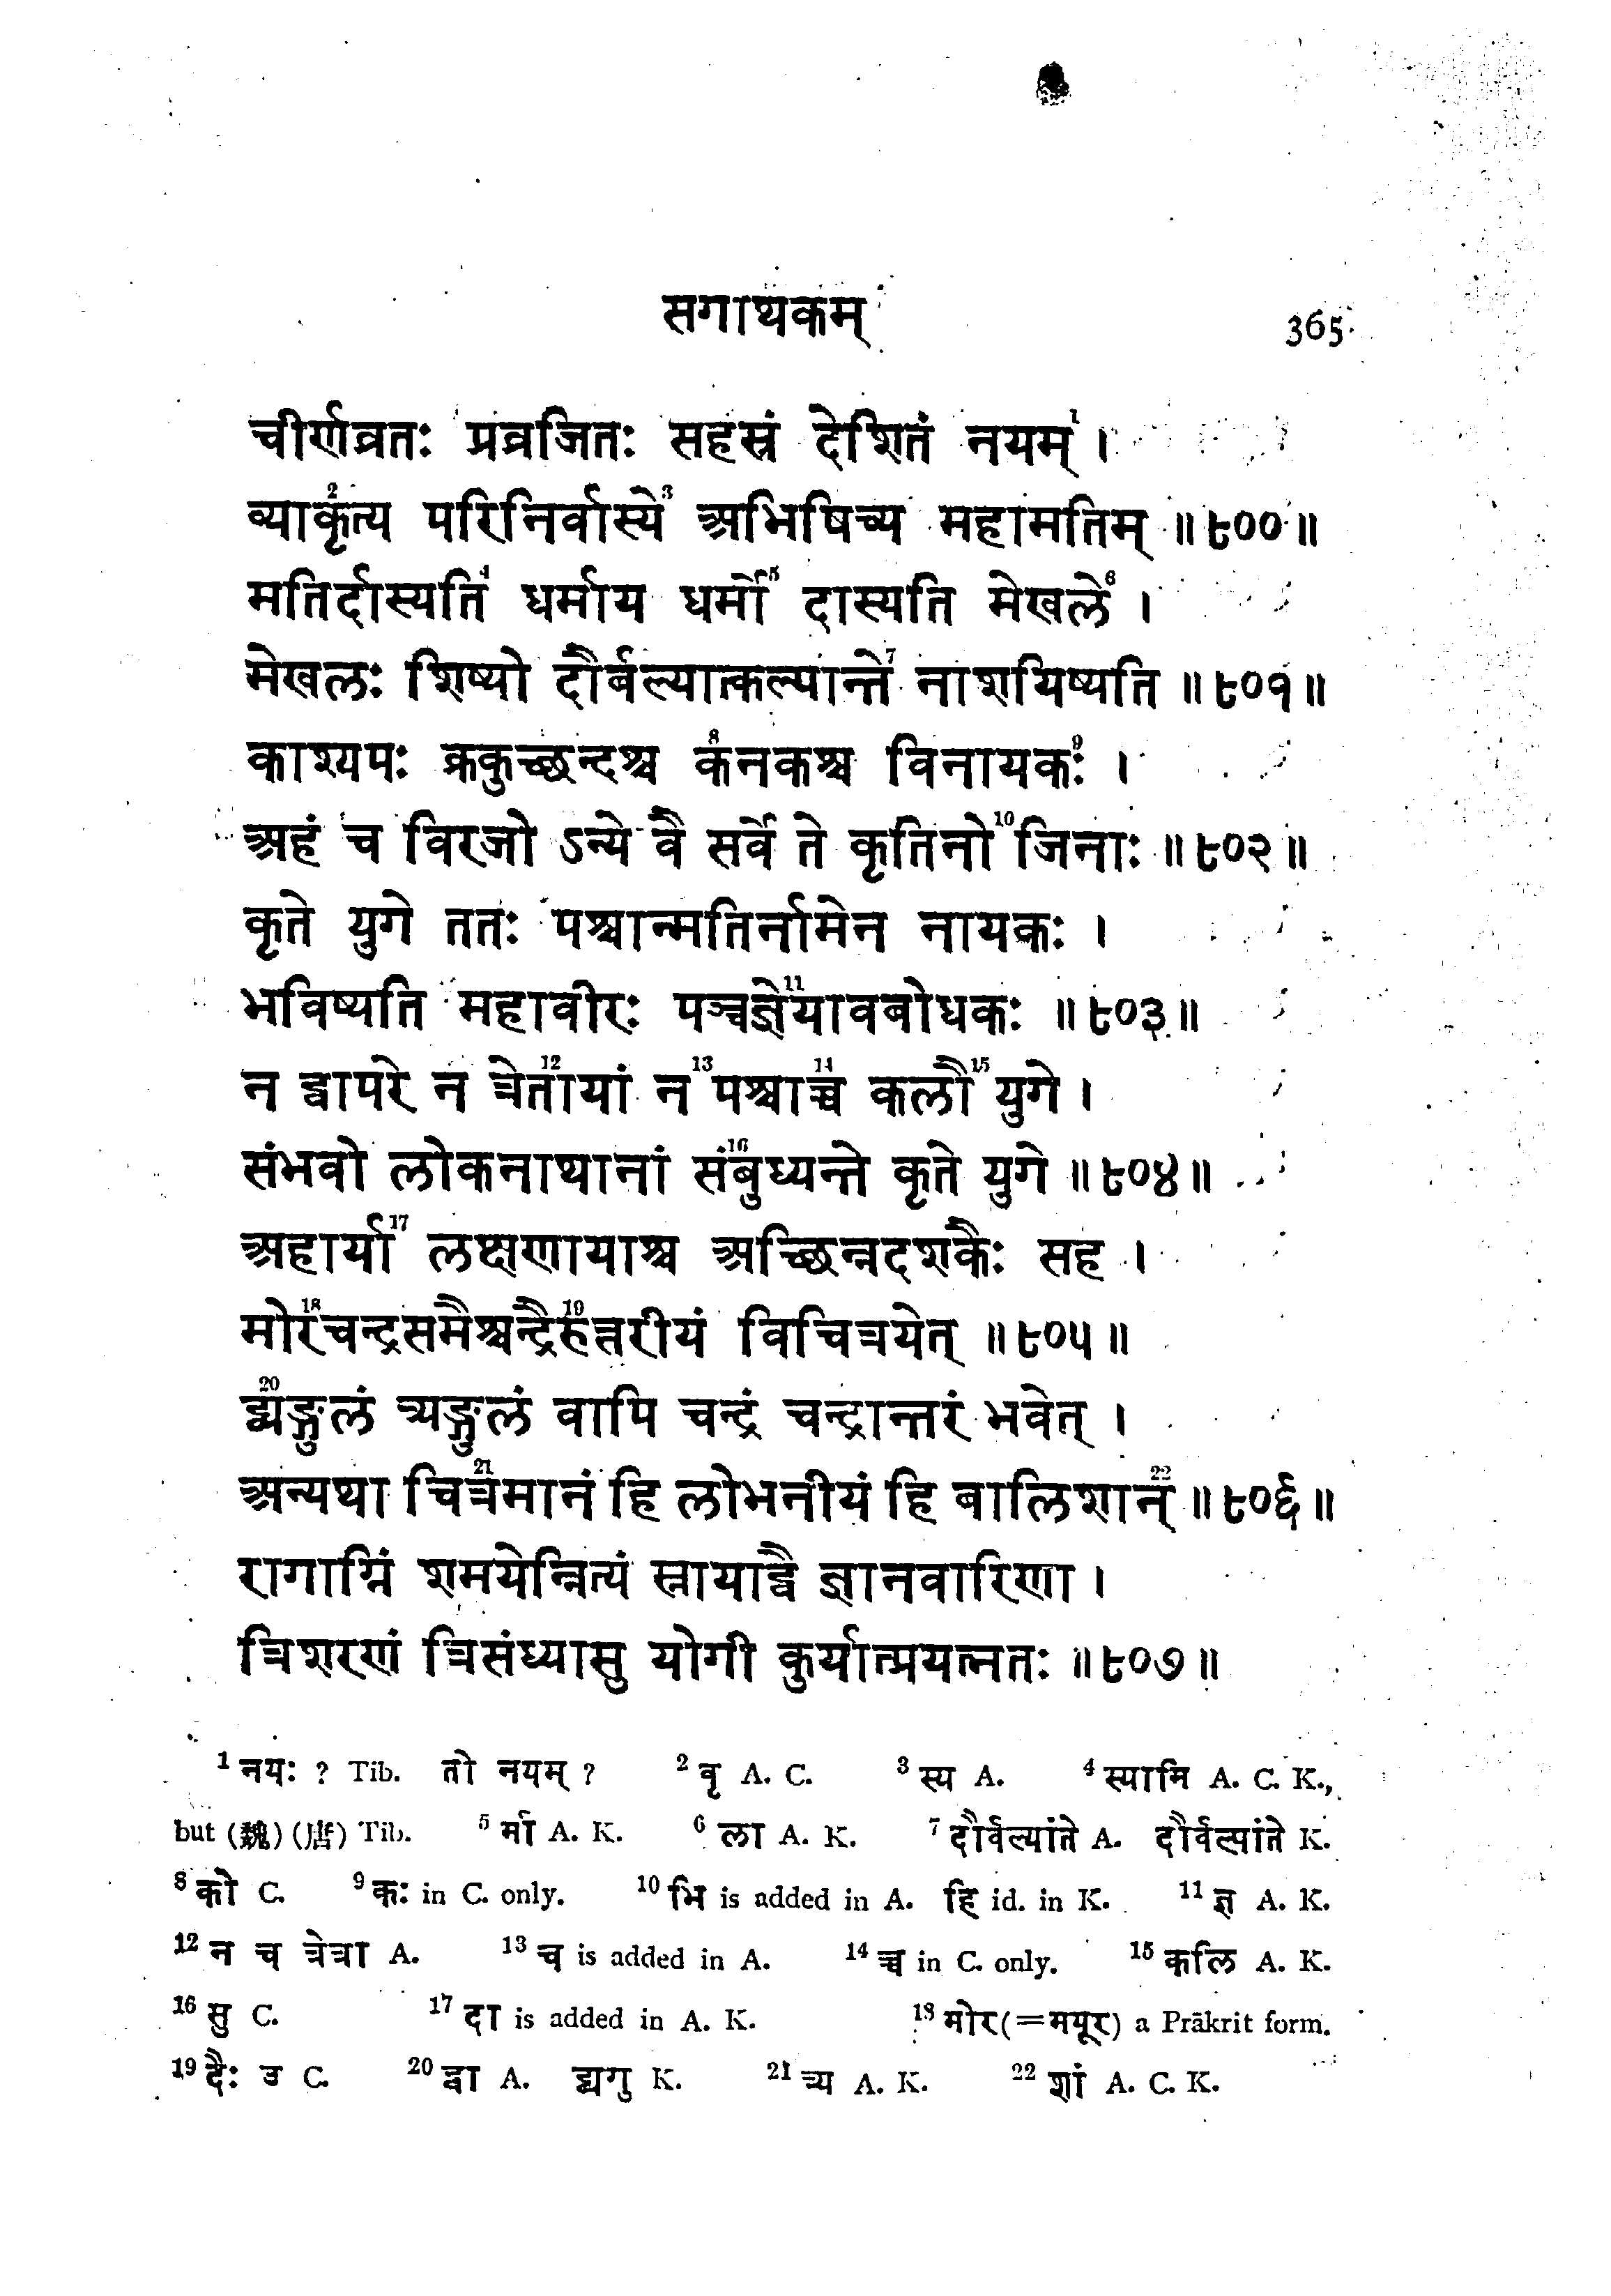 सगाथकम् 365
चीर्णव्रतः प्रव्रजितः सहस्रं देशितं नयम्¹ ।
व्याकृ²त्य परिनिर्वास्ये³ अभिषिच्य महामतिम् ॥८००॥
मतिर्दास्यति⁴ धर्माय धर्मो⁵ दास्यति मेखले⁶ ।
मेखलः शिष्यो दौर्बल्यात्कल्पान्ते⁷ नाशयिष्यति ॥८०१॥
काश्यपः क्रकुच्छन्दश्च क⁸नकश्च विनायकः⁹ ।
अहं च विरजो ऽन्ये वै सर्वे ते कृतिनो¹⁰ जिनाः ॥८०२॥
कृते युगे ततः पश्चान्मतिर्नामेन नायकः ।
भविष्यति महावीरः पञ्चज्ञे¹¹यावबोधकः ॥८०३॥
न द्वापरे न त्रेता¹²यां न¹³ पश्चाच्च¹⁴ कलौ¹⁵ युगे ।
संभवो लोकनाथानां संबु¹⁶ध्यन्ते कृते युगे ॥८०४॥
अहार्या¹⁷ लक्षणायाश्च अच्छिन्नदशकैः सह ।
मोर¹⁸चन्द्रसमैश्चन्द्रैरु¹⁹त्तरीयं विचित्रयेत् ॥८०५॥
द्व्य²⁰ङ्गुलं त्र्यङ्गुलं वापि चन्द्रं चन्द्रान्तरं भवेत् ।
अन्यथा चित्र²¹मानं हि लोभनीयं हि बालिशान्²² ॥८०६॥
रागाग्निं शमयेन्नित्यं स्नायाद्वै ज्ञानवारिणा ।
त्रिशरणं त्रिसंध्यासु योगी कुर्यात्प्रयत्नतः ॥८०७॥
¹ नयः ? Tib. तो नयम् ? ² वृ A. C. ³ स्य A. ⁴ स्यामि A. C. K.,
but (魏) (唐) Tib. ⁵ र्मा A. K. ⁶ ला A. K. ⁷ दौर्वल्यांते A. दौर्वल्पांते K.
⁸ को C. ⁹ कः in C. only. ¹⁰ भि is added in A. हि id. in K. ¹¹ ज्ञ A. K.
¹² न च त्रेत्रा A. ¹³ च is added in A. ¹⁴ च्च in C. only. ¹⁵ कलि A. K.
¹⁶ सु C. ¹⁷ दा is added in A. K. ¹⁸ मोर(=मयूर) a Prākrit form.
¹⁹ दैः उ C. ²⁰ द्वा A. द्यगु K. ²¹ त्र्य A. K. ²² शां A. C. K.